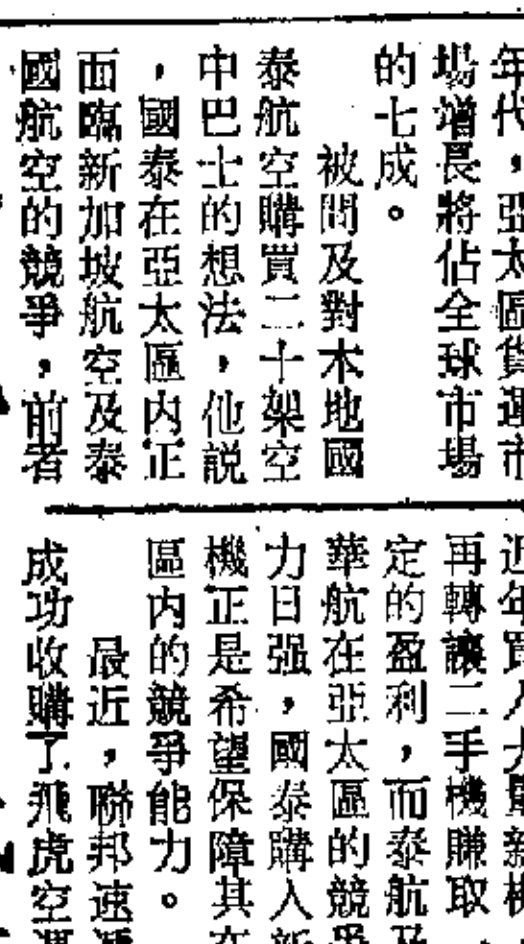 年代，亞太區貨運市
場增長將佔全球市場
的七成。
被問及對本地國
泰航空購買二十架空
中巴士的想法，他説
，國泰在亞太區内正
面臨新加坡航空及泰
國航空的競爭，前者
近年買入大量新機
再轉讓二手機賺取
定的盈利，而泰航及
華航在亞太區的競爭
力日强，國泰購入新
機正是希望保障其在
區内的競爭能力。
最近，聯邦速遞
成功收購了飛虎空運